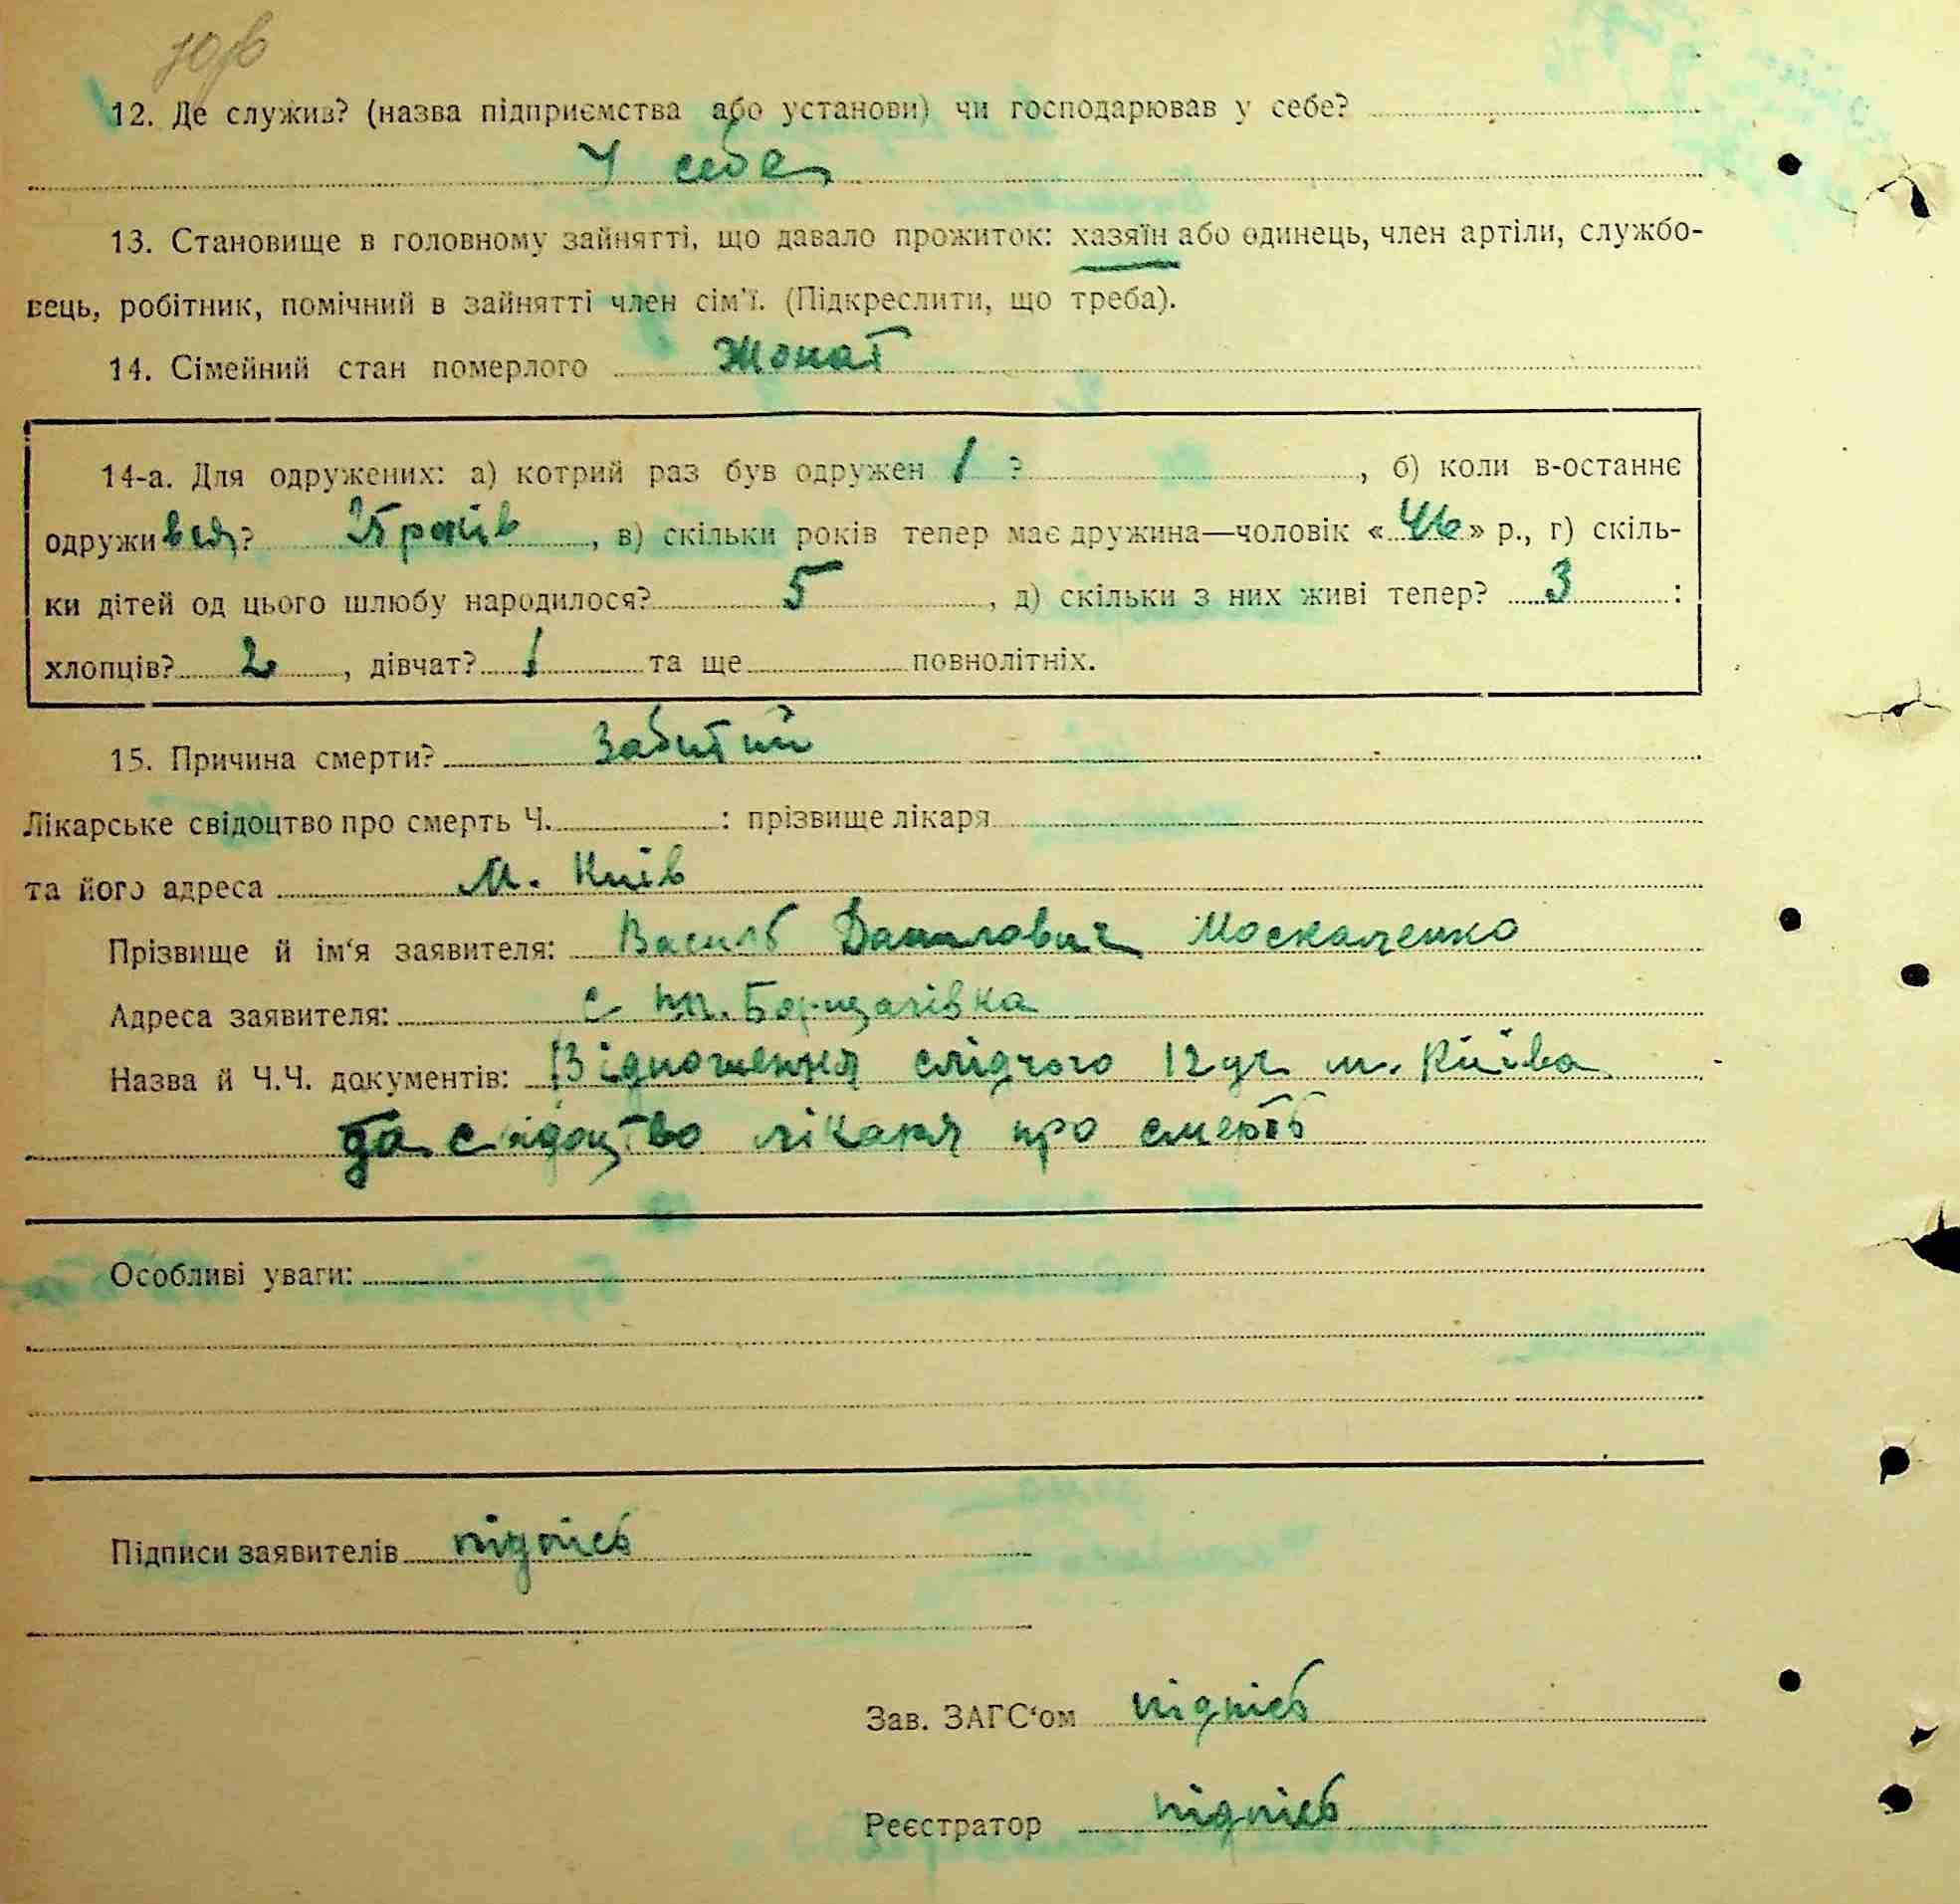 12. Де служив? (назва підприємства або установи) чи господарював у себе?
У себе
13. Становище в головному зайнятті, що давало прожиток: хазяїн або одинець, член артіли, службо-
вець, робітник, помічний в зайнятті член сім'ї. (Підкреслити, що треба).
14. Сімейний стан померлого жонат
14-а. Для одружених: а) котрий раз був одружен 1 ?, б) коли в-останнє
одруживсь? 25 років, в) скільки років тепер має дружина—чоловік «46» р., г) скіль-
ки дітей од цього шлюбу народилося? 5, д) скільки з них живі тепер? 3 :
хлопців? 2, дівчат? 1 та ще повнолітніх.
15. Причина смерти? Забитий
Лікарське свідоцтво про смерть Ч. : прізвище лікаря
та його адреса м. Київ
Прізвище й ім'я заявителя: Василь Данилович Москаленко
Адреса заявителя: с Борщагівка
Назва й Ч.Ч. документів: Відношення слідчого 12 уч. м. Київа
да свідоцтво лікаря про смерть
Особливі уваги:
Підписи заявителів підпісь
Зав. ЗАГС'ом підпісь
Реєстратор підпісь